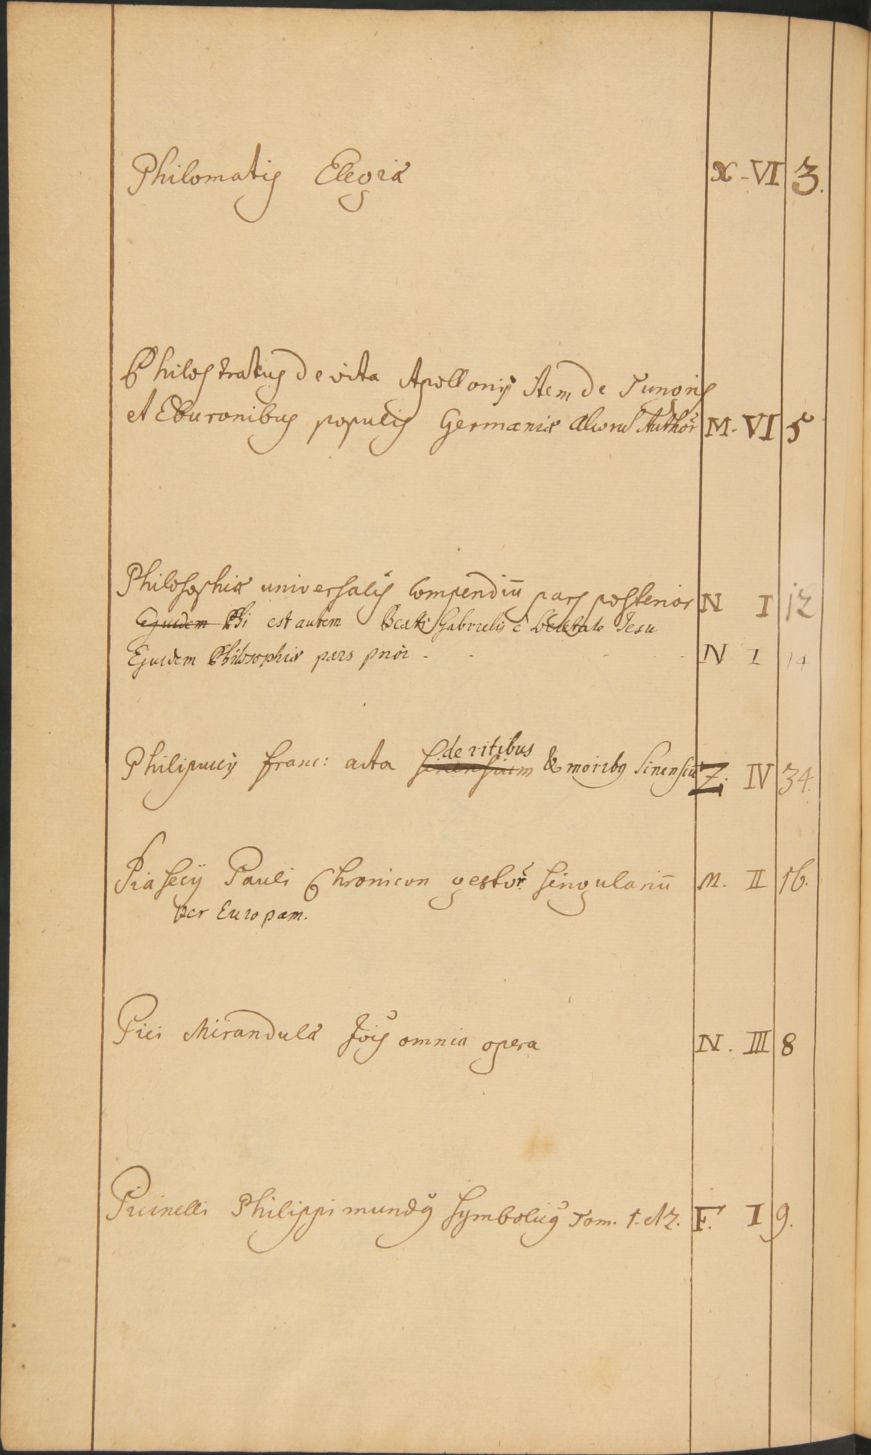 Philomatis Elegiæ X - VI 3.
Philostratus de vita Apollonij Item de Tungris
et Eburonibus populis Germaniæ aliorũ Authoř M - VI 5
Philosophiæ universalis Compendiũ pars posterior N I 12
Ejusdem Phi est autem Beati Gabrielis è Jesu
Ejusdem Philosophiæ pars prior - - - N I 14
Philipucij franc: acta sinensium de ritibus & moribg Sinensiũ Z. IV 34.
Piasecij Pauli Chronicon gestoř singulariũ M. II 16.
per Europam.
Pici Mirandulæ Jõis omnia opera N. III 8
Picinelli Philippi mundg symbolicg Tom. 1. et 2. F. I 9.